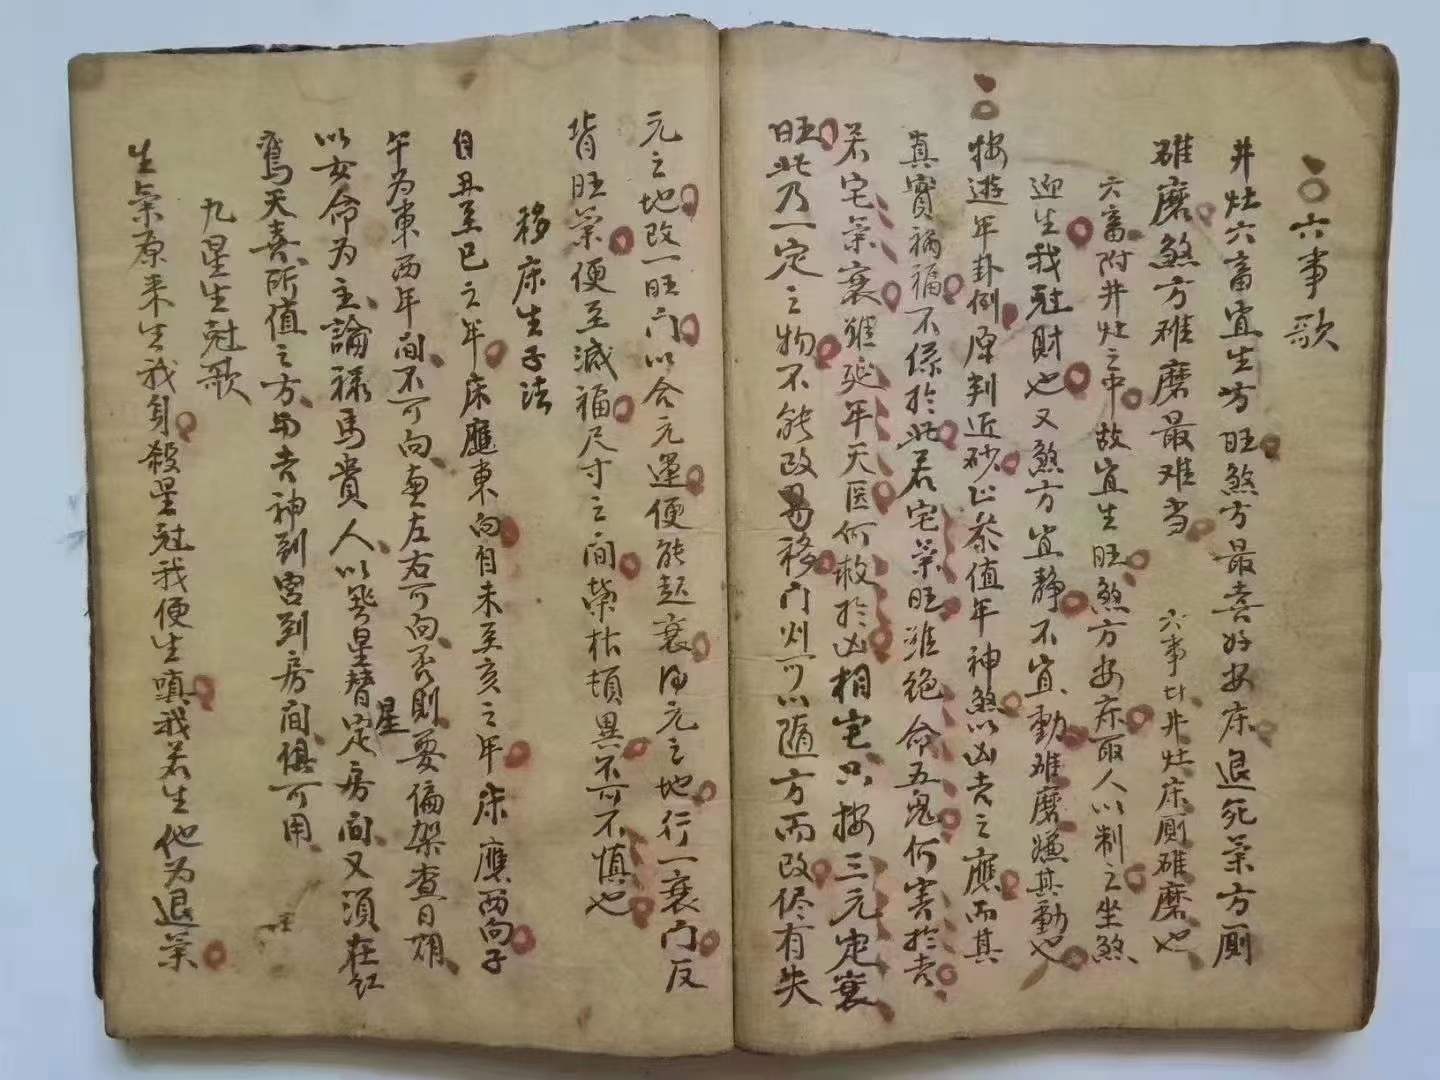 六事歌
井灶六畜宜生方旺煞方最喜好安床退死気方厕
碓磨煞方碓磨最难当 六事廿井灶床厕碓磨也
六畜附井灶之中故宜生旺煞方安床取人以制之坐煞
迎生我尅財也又煞方宜静不宜動碓磨嫌其動也
按遊年卦例原判近砂止参值年神煞以凶吉之應而其
真實禍福不係於此若宅気旺雖絶命五鬼何害於吉
若宅気衰雖延年天医何救於凶相宅只按三元定衰
旺此乃一定之物不能改易移门灶可以随方而改侭有失
元之地改一旺门以合元運便能起衰得元之地行一衰门反
背旺気便至減福尺寸之间榮枯頓異不可不慎也
移床生子法
自丑至巳之年床應東向自未至亥之年床應西向子
午为東西年间不可向直左右可向否則要偏架查日烟
以女命为主論禄馬貴人以號星替定星房间又須在紅
鸞天喜所值之方与吉神到宮到房间俱可用
九星生尅歌
生気原来生我身殺星尅我便生嗔我若生他为退気